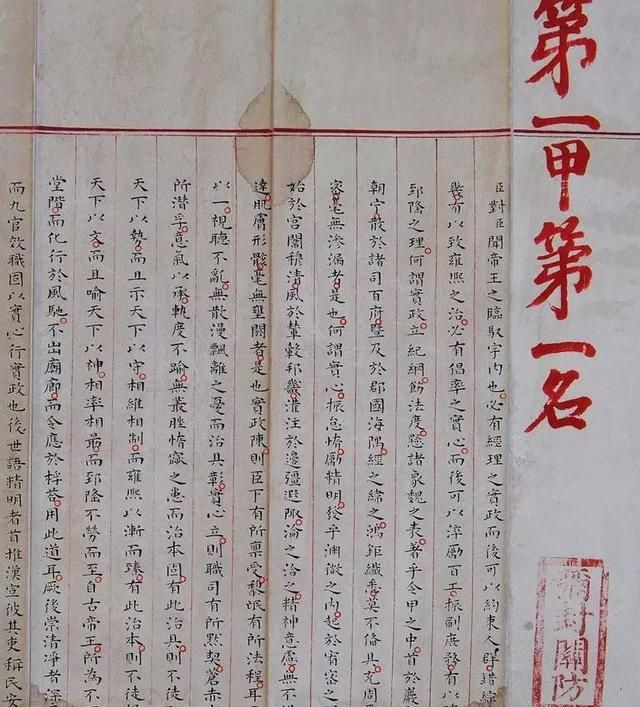 第一甲第一名
彌封關防
臣對臣聞帝王之臨馭宇內也必有經理之實政而後可以約束人群錯綜
幾有以致雍熙之治必有倡率之實心而後可以淬勵百工振刷庶務有以
郅隆之理何謂實政立紀綱飭法度懸諸象魏之表著乎令甲之中首於巖
朝宁散於諸司百府暨及於郡國海隅經之緯之鴻鉅纖悉莫不備具充周
密毫無滲漏者是也何謂實心振怠惰勵精明發乎淵微之內起於宥密之
始於宮闈穆清風於輦轂邦畿灌注於邊疆遐陬淪之洽之精神意慮無不
達肌膚形骸毫無壅閼者是也實政陳則臣下有所稟受黎氓有所法程耳
以一視聽不亂無散漫飄離之憂而治具彰實心立則職司有所默契蒼赤
所潛孚意氣以承軌度不踰無叢脞惰窳之患而治本固有此治具則不徒
天下以勢而且示天下以守相維相制而雍熙以漸而臻有此治本則不徒
天下以文而且喻天下以神相率相勗而郅隆不勞而至自古帝王所為不
堂階而化行於風馳不出廟廊而令應於桴答用此道耳厥後崇清淨者深
而九官效職固以實心行實政也後世語精明者首推漢宣彼其吏稱民安